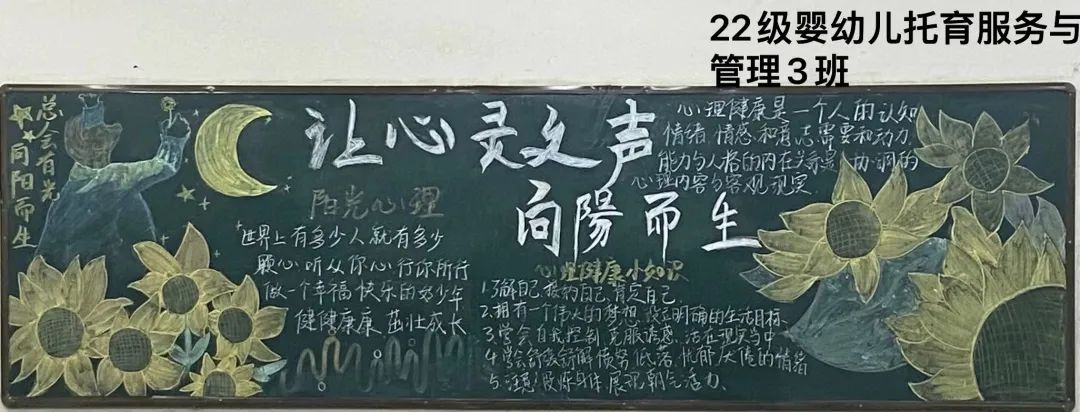 22级婴幼儿托育服务与
管理3班
总会有光
向阳而生
让心灵之声
向陽而生
心理健康是一个人的认知
情绪、情感和意志、需要和动力、
能力与人格的内在关系是协调的
心理内容与客观现实
阳光心理
世界上有多少人就有多少
颗心听从你心行你所行
做一个幸福快乐的好少年
健健康康 茁壮成长
心理健康小知识
1.了解自己、接纳自己、肯定自己
2.拥有一个伟人的梦想,设立明确的生活目标
3.学会自我控制,克服诱惑,活在现实当中
4.学会舒缓
低落、忧郁
的情绪
5.注意锻炼身体,展现朝气活力。